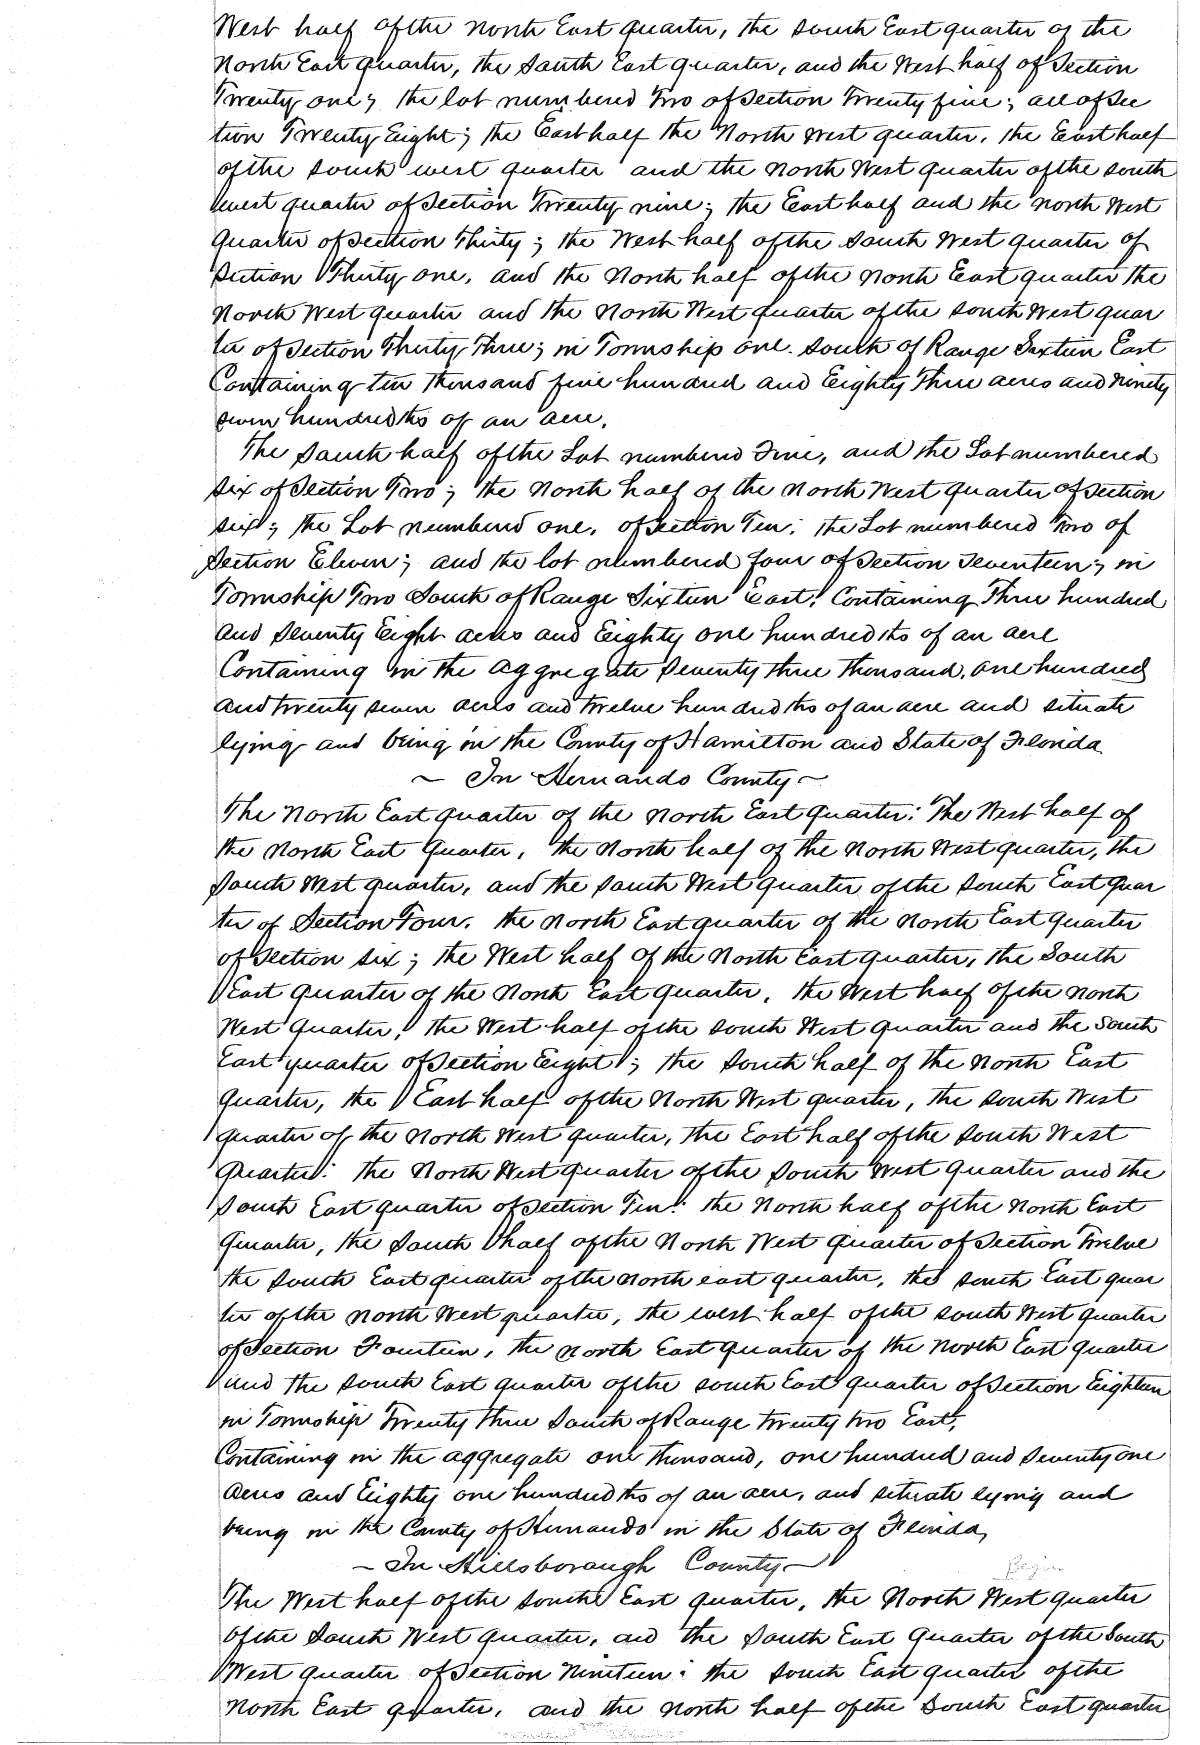 West half of the North East quarter, the South East quarter of the
North East quarter, the South East quarter, and the West half of Section
Twenty one; the lot numbered Two of Section Twenty five; all of Sec
tion Twenty Eight; the East half the North West quarter, the East half
of the South west quarter and the North West quarter of the South
west quarter of Section Twenty nine; the East half and the North West
Quarter of Section Thirty; the West half of the South West quarter of
Section Thirty one, and the North half of the North East quarter the
North West quarter and the North West quarter of the South West quar
ter of Section Thirty Three; in Township one South of Range Sixteen East
Containing ten thousand five hundred and Eighty Three acres and ninety
seven hundredths of an acre.
The South half of the Lot numbered Five, and the Lot numbered
Six of Section Two; the North half of the North West quarter of Section
Six; the Lot numbered one, of Section Ten; the Lot numbered Two of
Section Eleven; and the lot numbered four of Section Seventeen; in
Township Two South of Range Sixteen East, Containing Three hundred
and Seventy Eight acres and Eighty one hundredths of an acre
Containing in the aggregate Seventy three thousand, one hundred
and twenty seven acres and twelve hundredths of an acre and situate
lying and being in the County of Hamilton and State of Florida
~ In Hernando County ~
The North East quarter of the North East quarter: The West half of
the North East Quarter, the North half of the North West quarter, the
South West quarter, and the South West quarter of the South East quar
ter of Section Four, the North East quarter of the North East quarter
of Section Six; the West half of the North East quarter, the South
East quarter of the North East Quarter, the West half of the North
West quarter, the West half of the South West quarter and the South
East quarter of Section Eight; the South half of the North East
Quarter, the East half of the North West quarter, the South West
quarter of the North West quarter, the East half of the South West
Quarter: the North West quarter of the South West quarter and the
South East quarter of Section Ten: the North half of the North East
Quarter, the South half of the North West quarter of Section Twelve
the South East quarter of the North east quarter, the South East quar
ter of the North West quarter, the west half of the South West quarter
of Section Fourteen, the North East quarter of the North East quarter
and the South East quarter of the South East quarter of Section Eighteen
in Township Twenty three South of Range twenty two East,
Containing in the aggregate one thousand, one hundred and seventy one
acres and Eighty one hundredths of an acre, and situate lying and
being in the County of Hernando in the State of Florida,
~ In Hillsborough County ~
Begin
The West half of the South East quarter, the North West quarter
of the South West quarter, and the South East Quarter of the South
West quarter of Section Nineteen: the South East quarter of the
North East quarter, and the North half of the South East quarter